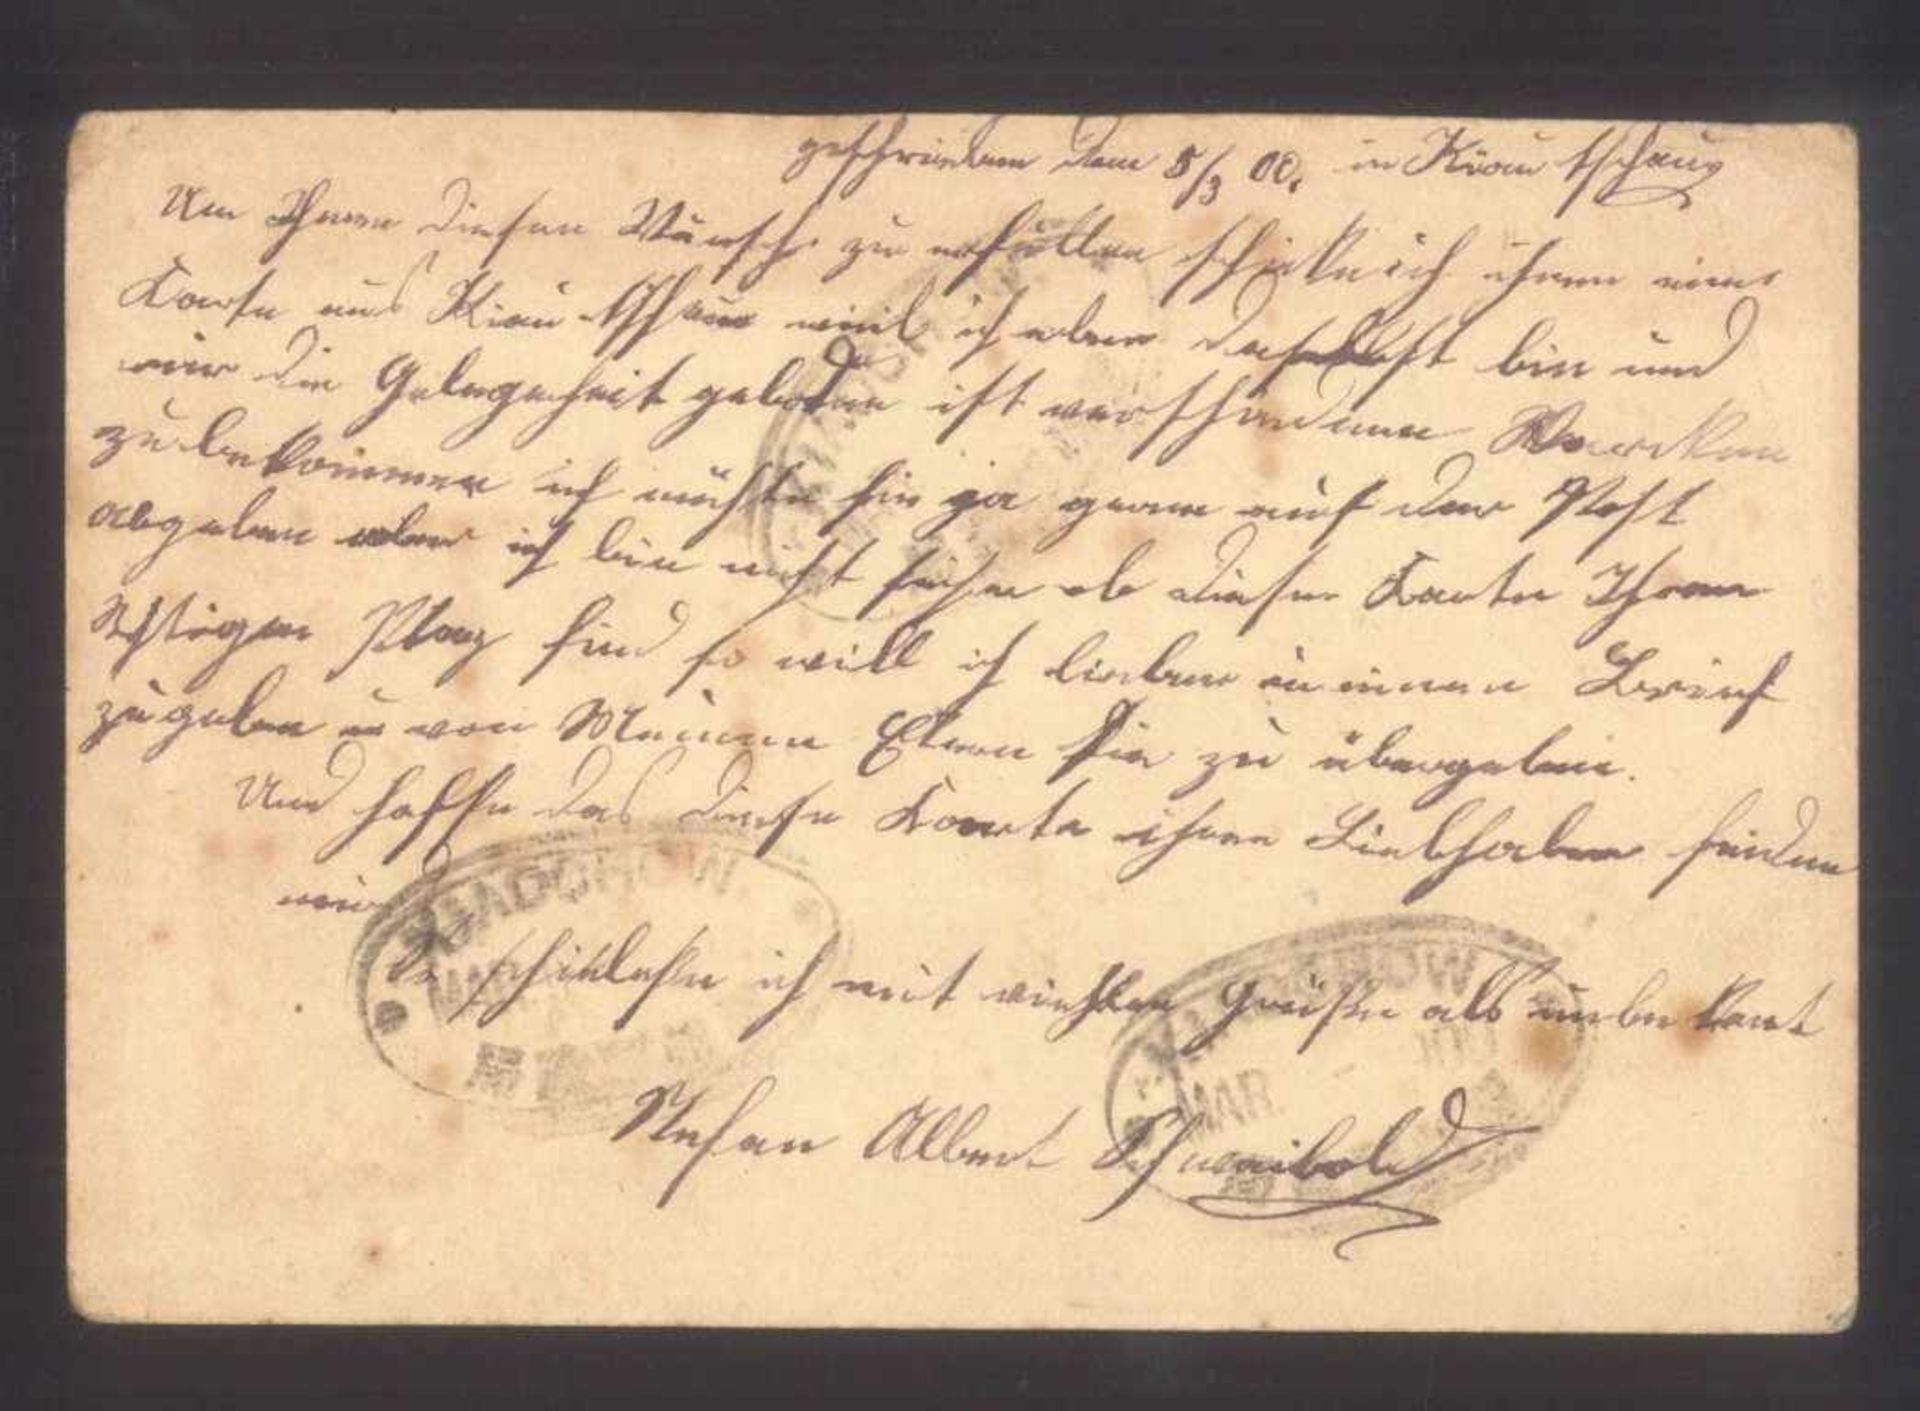 geschrieben den 5/3 00. in Kiau tschaug
Um Ihnen diesen Wunsch zu erfüllen schicke ich ihnen eine
Karte aus Kiau-tschau weil ich eben daselbst bin und
mir die Gelegenheit geboden ist verschiedenen Marcken
zu bekommen ich möchte sie ja gerne auf der Post
abgeben aber ich bin nicht sicher ob diese Karte Ihren
Plaz find so will ich lieber in einen Brief
zugeben u von Meinen Eltern Sie zu übergeben.
Und hoffe das diese Karte ihren Liebhaber finden
wird
KIAUTSCHOW
MAR
So schließe ich mit vielen Grüße als unbekant
KIAUTSCHOW
MAR.
Stefan Albert Schweibold